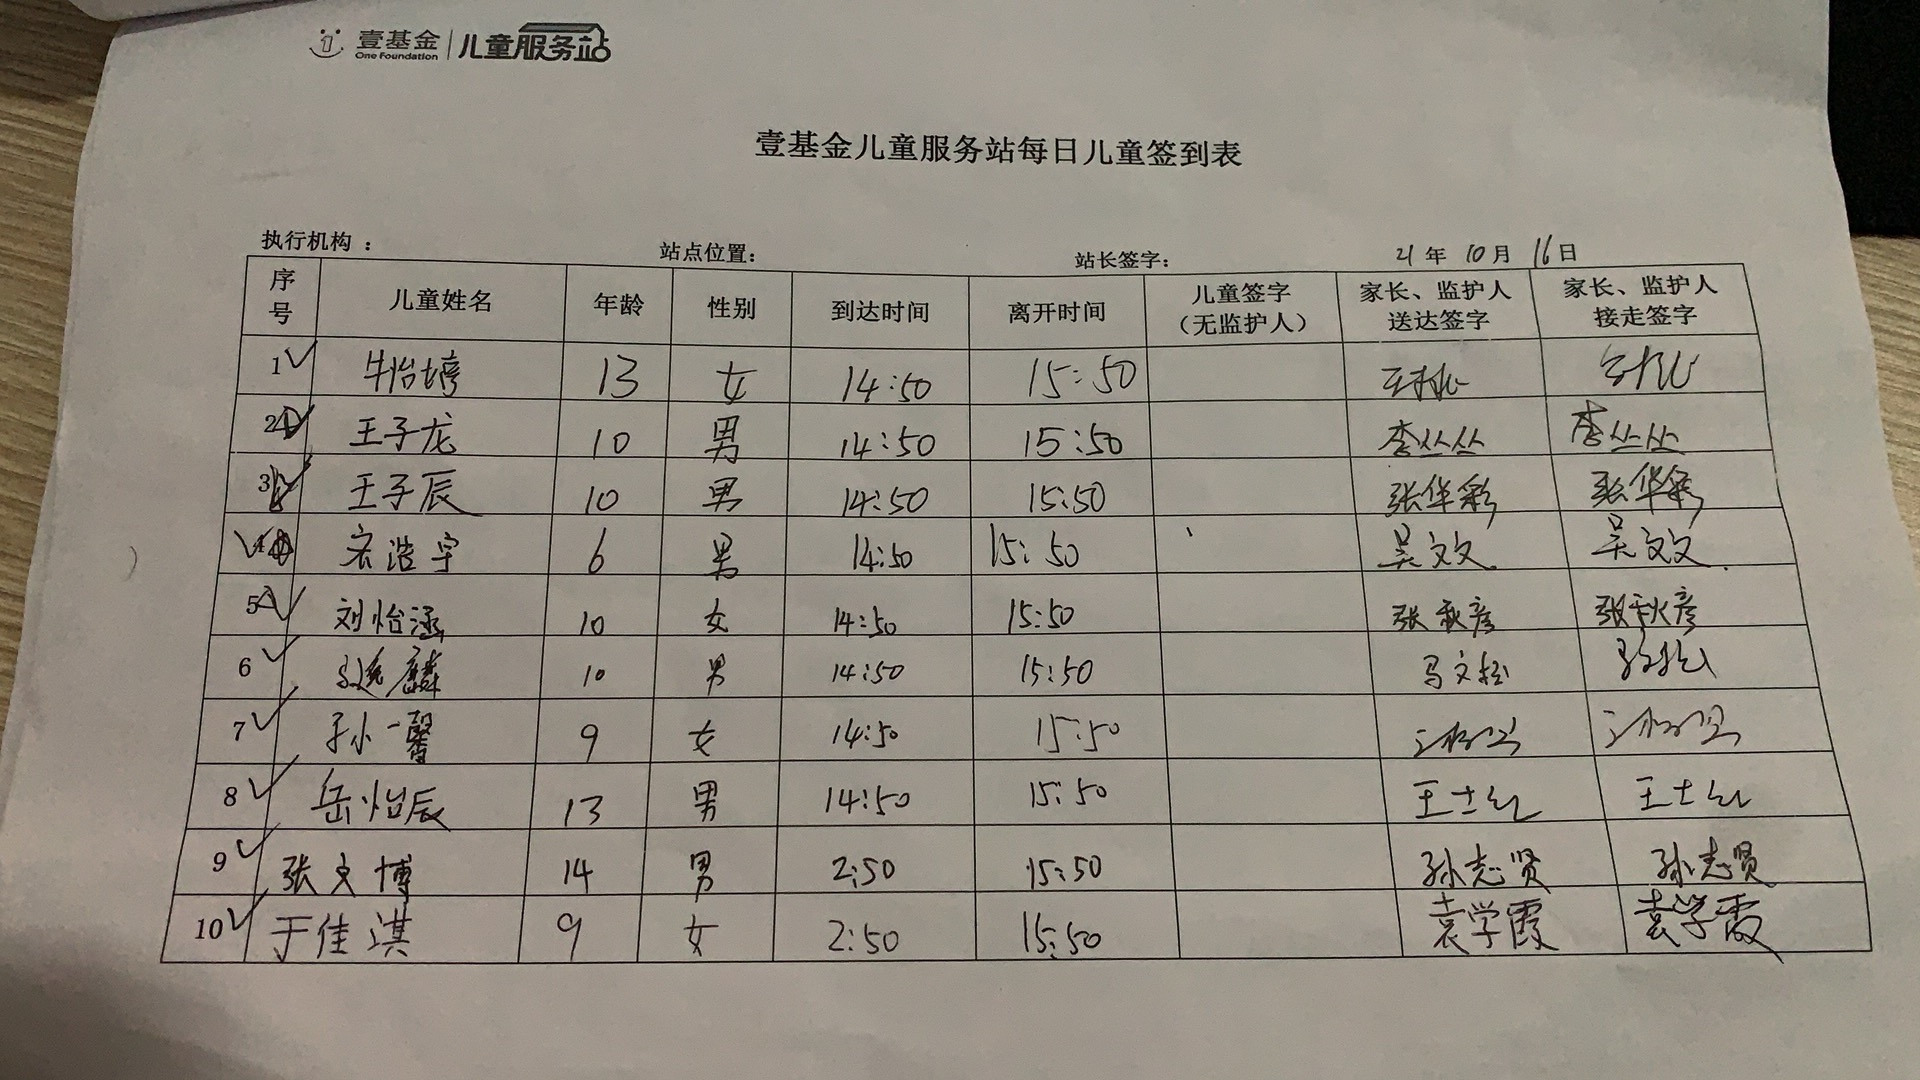 壹基金 儿童服务站
One Foundation
壹基金儿童服务站每日儿童签到表
执行机构： 站点位置： 站长签字： 21年 10月 16日
序号 儿童姓名 年龄 性别 到达时间 离开时间 儿童签字（无监护人） 家长、监护人送达签字 家长、监护人接走签字
1 牛怡婷 13 女 14:50 15:50
2 王子龙 10 男 14:50 15:50 李丛丛 李丛丛
3 王子辰 10 男 14:50 15:50 张华彩 张华彩
4 宏浩宇 6 男 14:50 15:50 吴文文 吴文文
5 刘怡涵 10 女 14:50 15:50 张秋彦 张秋彦
6 10 男 14:50 15:50 马文松
7 孙一馨 9 女 14:50 15:50
8 岳怡辰 13 男 14:50 15:50 王士红 王士红
9 张文博 14 男 2:50 15:50 孙志贤 孙志贤
10 于佳淇 9 女 2:50 15:50 袁学霞 袁学霞